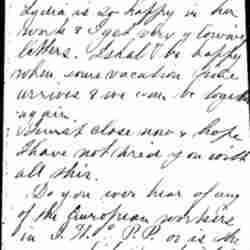 Lydia is so happy in her
work & I get very lovely
letters. I shall be happy
when your vacation time
arrives & we can be together
again.
I must close now & hope
I have not tired you with
all this.
Do you ever hear of any
of the European workers
in I. Th. P.P. or is the